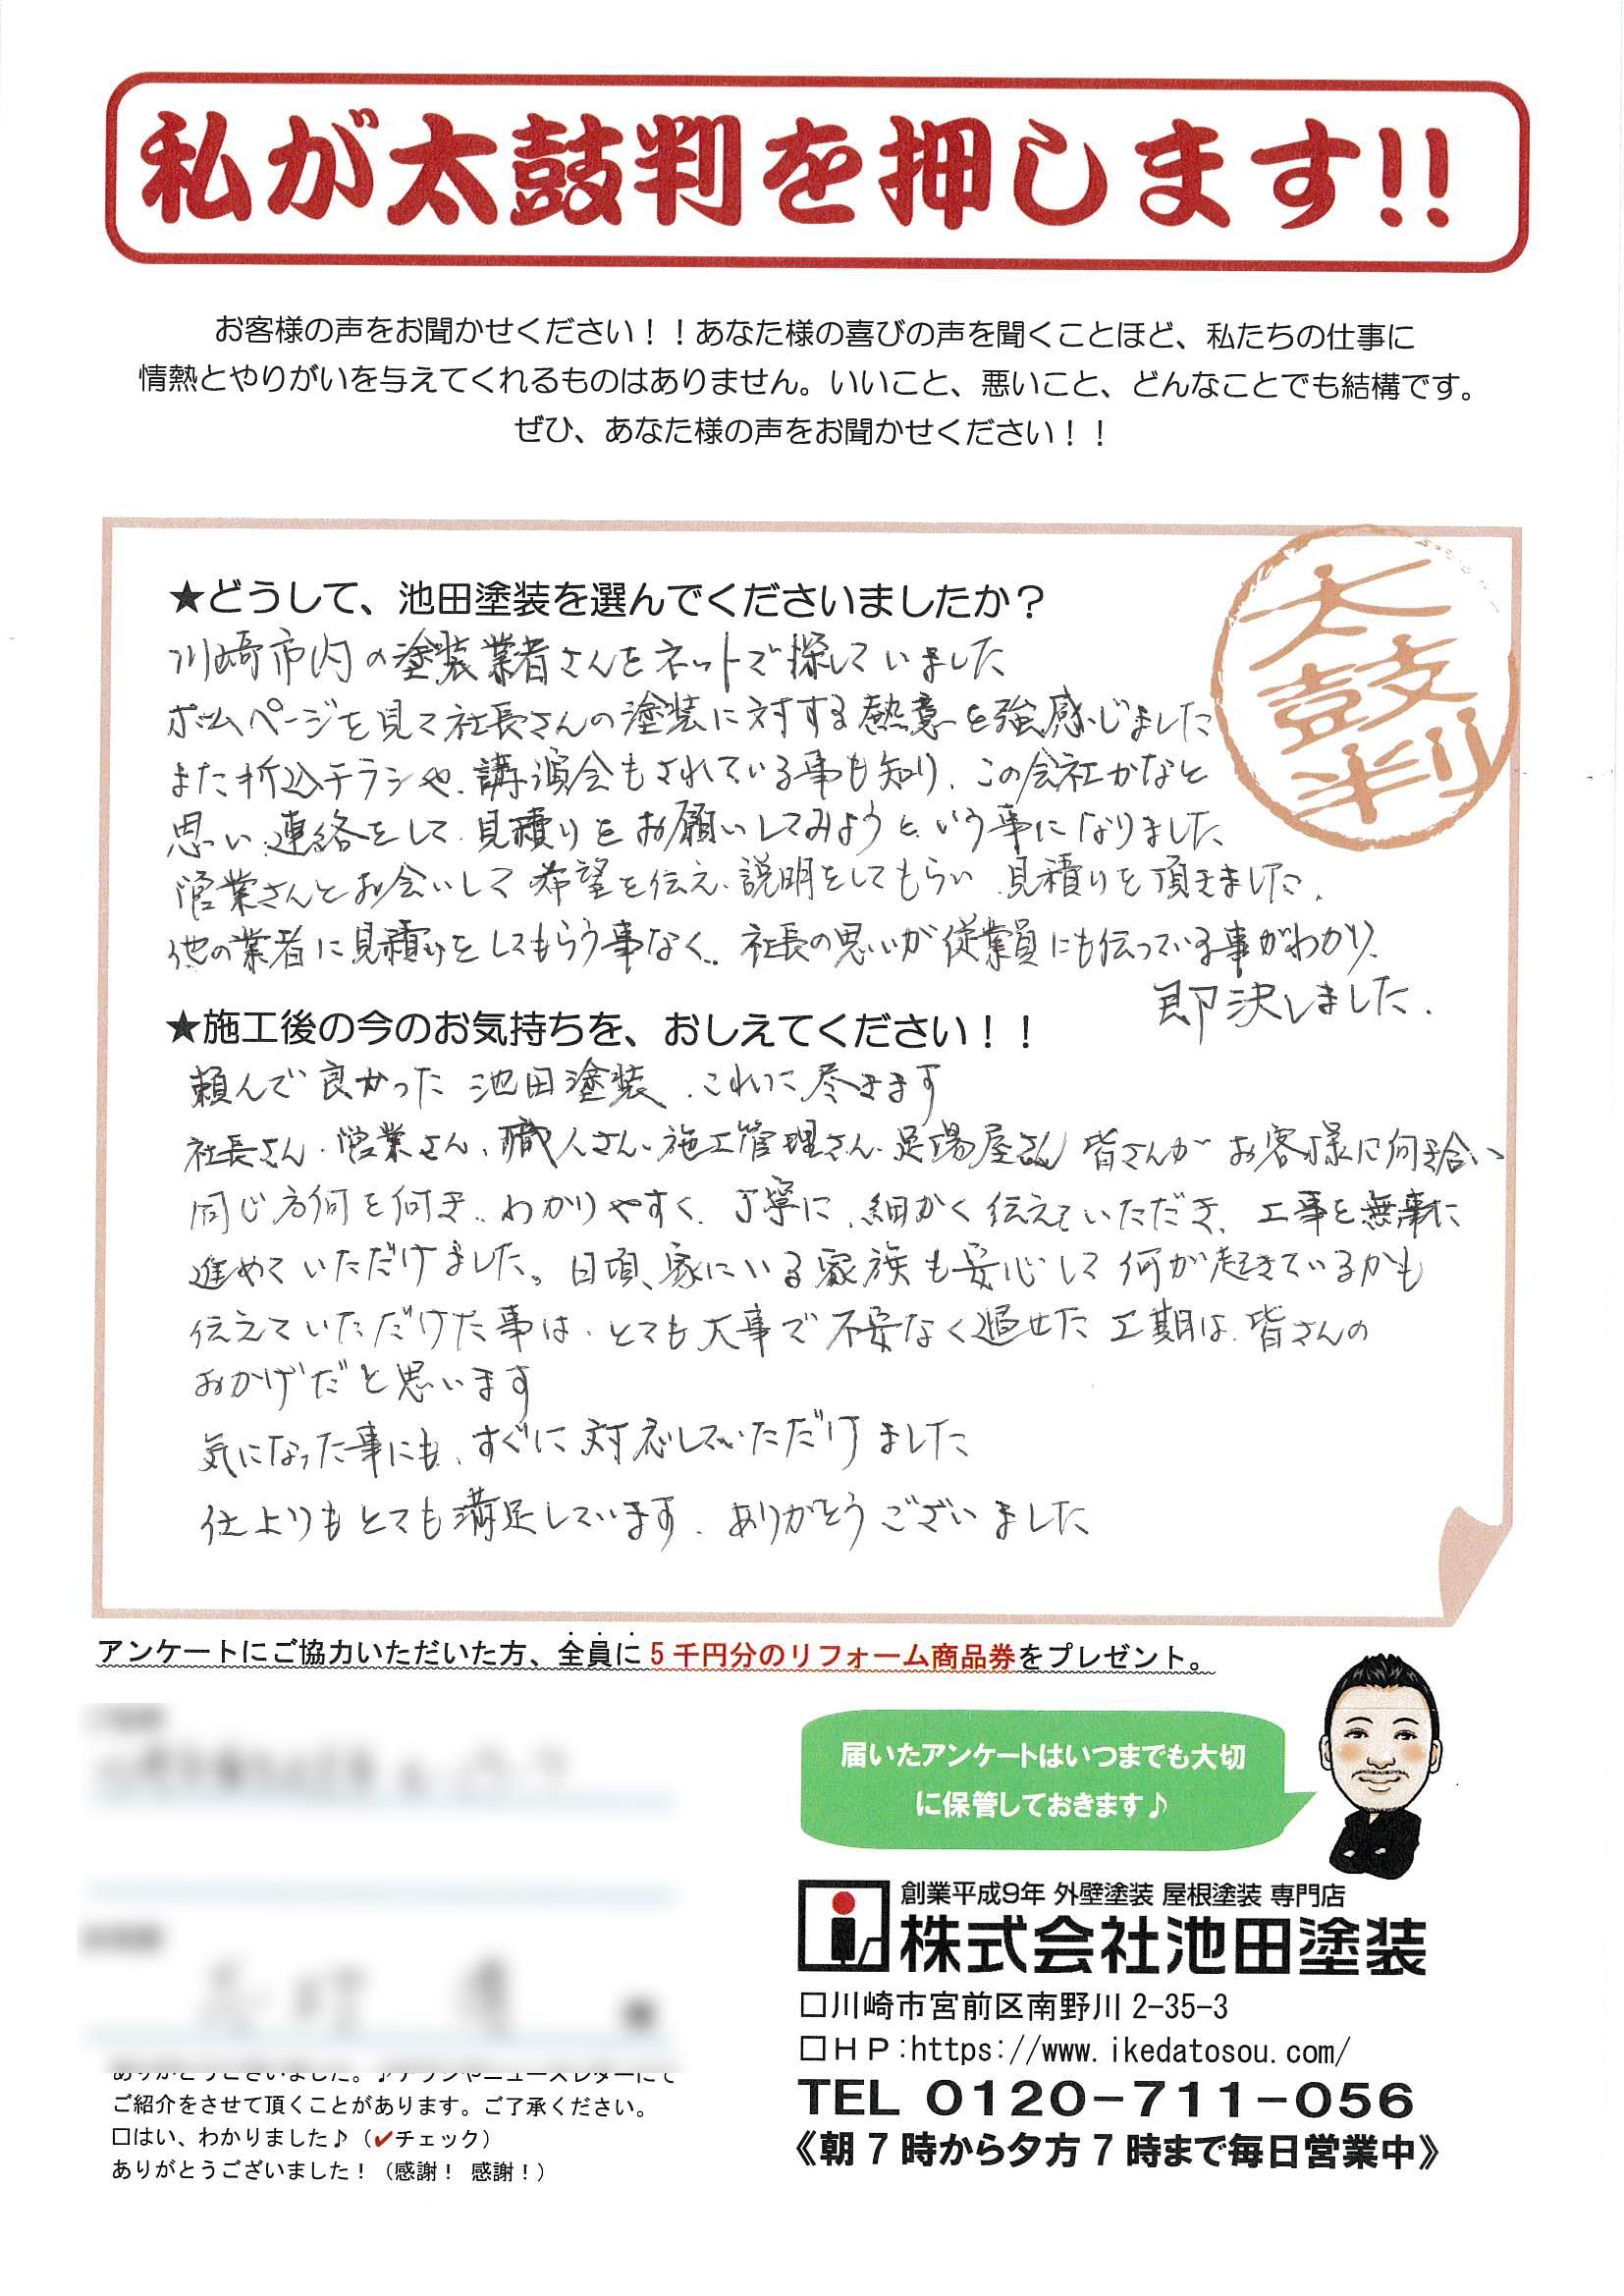 私が太鼓判を押します!!
お客様の声をお聞かせください！！あなた様の喜びの声を聞くことほど、私たちの仕事に
情熱とやりがいを与えてくれるものはありません。いいこと、悪いこと、どんなことでも結構です。
ぜひ、あなた様の声をお聞かせください！！
太鼓判
★どうして、池田塗装を選んでくださいましたか？
川崎市内の塗装業者さんをネットで探していました
ホームページを見て社長さんの塗装に対する熱意を強感じました
また折込チラシや、講演会もされている事も知り、この会社かなと
思い、連絡をして、見積りをお願いしてみようという事になりました
営業さんとお会いして希望を伝え、説明をしてもらい、見積りを頂きました、
他の業者に見積りをしてもらう事なく、社長の思いが従業員にも伝っている事がわかり、
即決しました．
★施工後の今のお気持ちを、おしえてください！！
頼んで良かった 池田塗装、これに尽きます
社長さん・営業さん、職人さん、施工管理さん、足場屋さん 皆さんがお客様に向き合い
同じ方向を向き、わかりやすく、丁寧に、細かく伝えていただき、工事を無事に
進めていただけました。日頃、家にいる家族も安心して何が起きているかも
伝えていただけた事は、とても大事で不安なく過せた工期は、皆さんの
おかげだと思います
気になった事にも、すぐに対応していただけました
仕上りもとても満足しています、ありがとうございました
アンケートにご協力いただいた方、全員に5千円分のリフォーム商品券をプレゼント。
届いたアンケートはいつまでも大切
に保管しておきます♪
創業平成9年 外壁塗装 屋根塗装 専門店
株式会社池田塗装
□川崎市宮前区南野川2-35-3
□ＨＰ:https://www.ikedatosou.com/
TEL 0120-711-056
《朝7時から夕方7時まで毎日営業中》
ありがとうございました。♪チラシやニュースレターにて
ご紹介をさせて頂くことがあります。ご了承ください。
□はい、わかりました♪（✔チェック）
ありがとうございました！（感謝！ 感謝！）